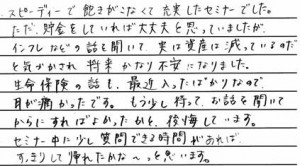 スピーディーで飽きがこなくて充実したセミナーでした。
ただ、貯金をしていれば大丈夫と思っていましたが、
インフレなどの話を聞いて、実は資産は減っているのだ
と気づかされ 将来かなり不安になりました。
生命保険の話も、最近入ったばかりなので、
耳が痛かったです。もう少し待って、お話を聞いて
からにすればよかったかと、後悔しています。
セミナー中に少し質問できる時間があれば、
すっきりして帰れたかな〜っと思います。